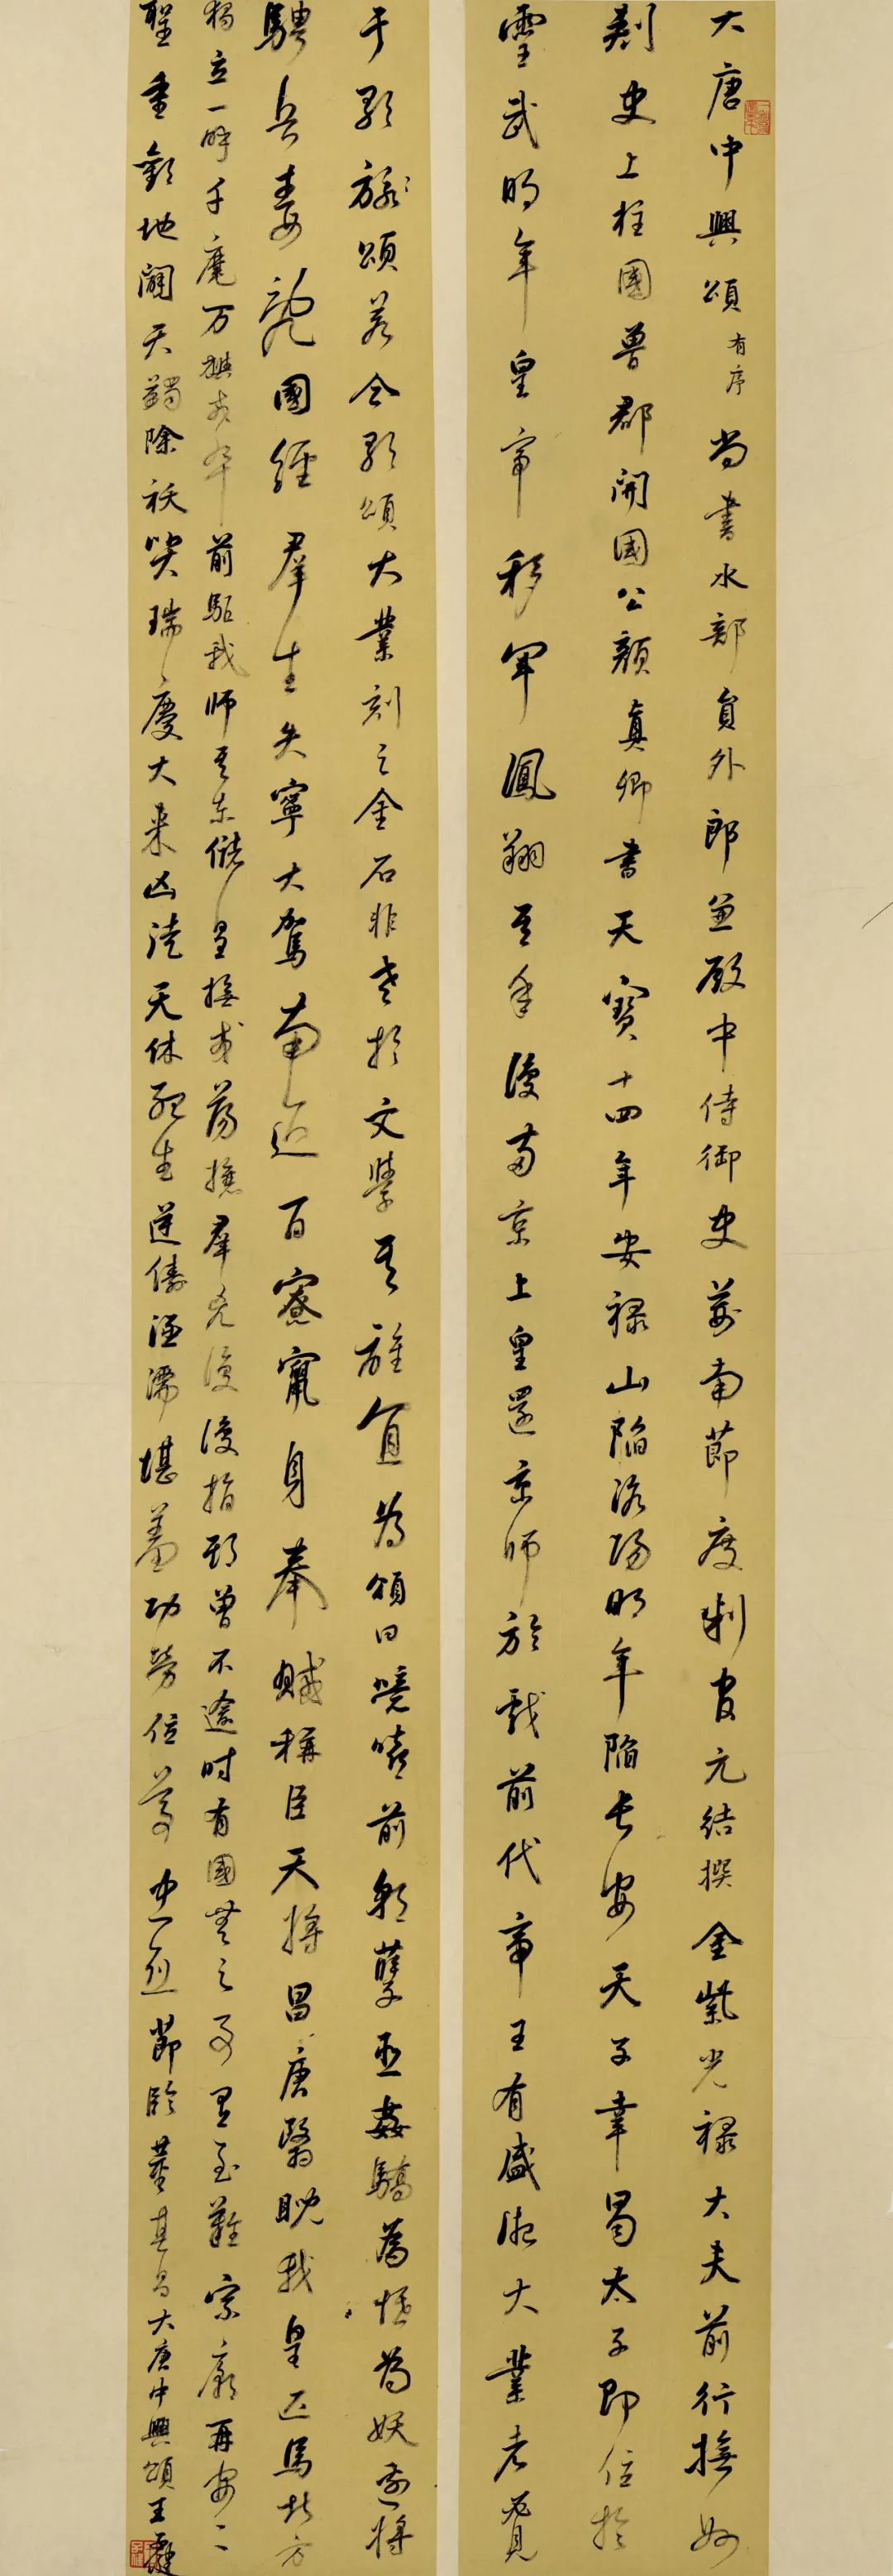 大唐中興頌有序尚書水部員外郎兼殿中侍御史荊南節度判官元結撰金紫光祿大夫前行撫州
刺史上柱國魯郡開國公顏真卿書天寶十四年安祿山陷洛陽明年陷長安天子幸蜀太子即位於
靈武明年皇帝移軍鳳翔其年復兩京上皇還京師於戲前代帝王有盛德大業者必見
于歌頌若今歌頌大業刻之金石非老於文學其誰宜為頌曰噫嘻前朝孽臣姦驕為惛為妖邊將
騁兵毒亂國經羣生失寧大駕南巡百寮竄身奉賊稱臣天將昌唐繄睨我皇匹馬北方
獨立一呼千麾萬旟戎卒前驅我師其東儲皇撫戎蕩攘羣兇復復指期曾不逾時有國無之事有至難宗廟再安二
聖重歡地闢天開蠲除祅災瑞慶大來凶徒逆儔涵濡天休死生堪羞功勞位尊忠烈節臨董其昌大唐中興頌王